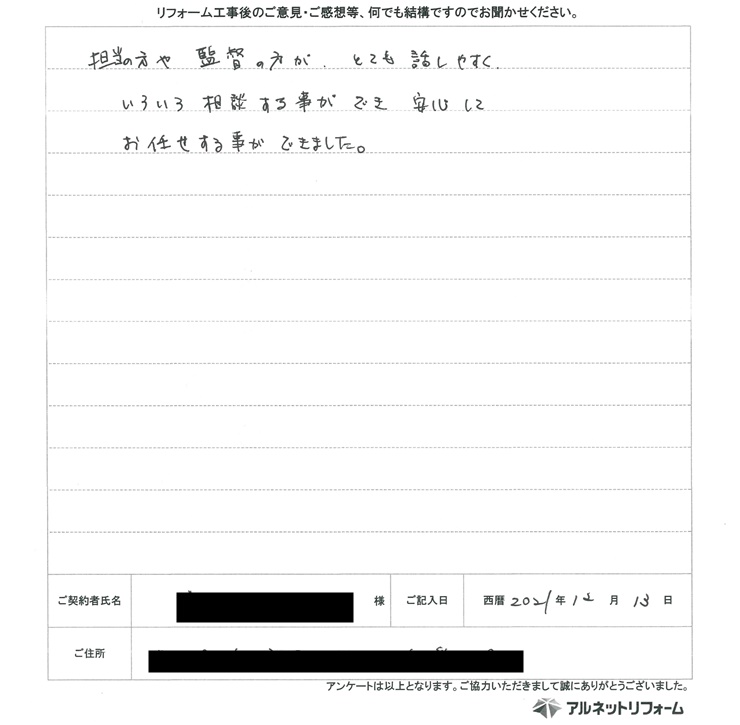 リフォーム工事後のご意見・ご感想等、何でも結構ですのでお聞かせください。
担当の方や 監督の方が、とても 話しやすく、
いろいろ 相談する事が でき 安心して
お任せする事が できました。
ご契約者氏名 様 ご記入日 西暦 2021年 12月 13日
ご住所
アンケートは以上となります。ご協力いただきまして誠にありがとうございました。
アルネットリフォーム